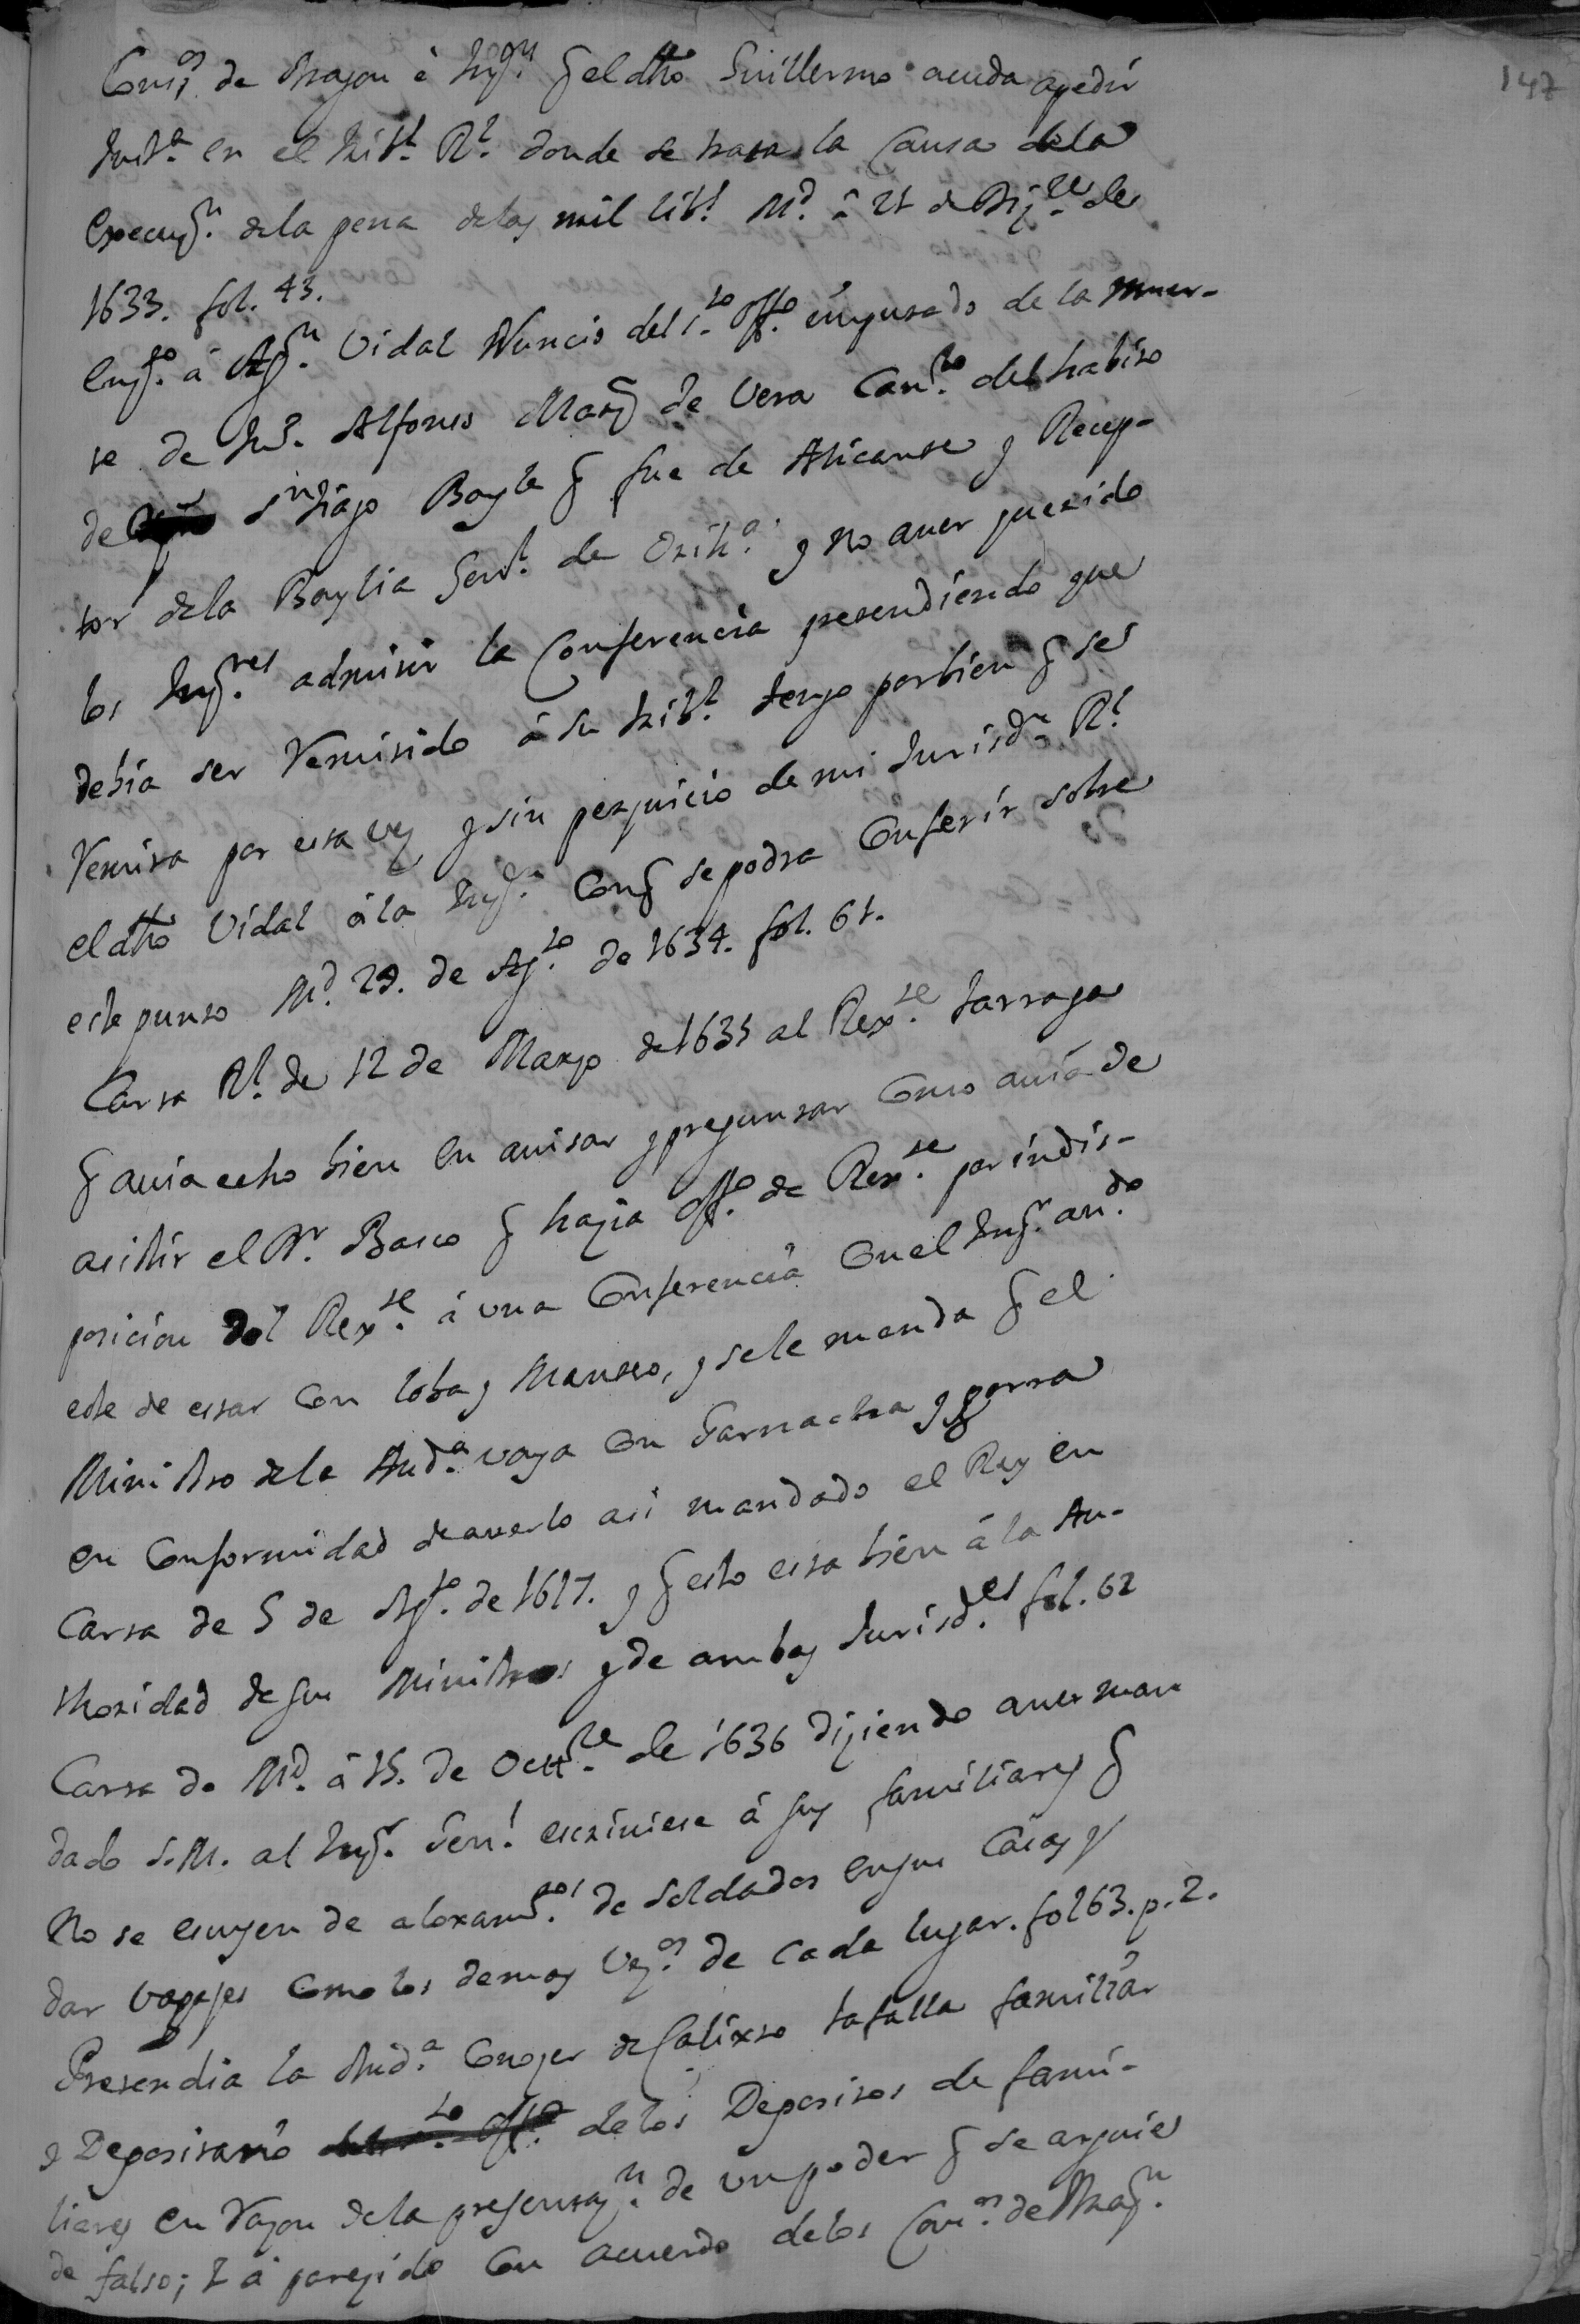 147
Cons.os de Aragon è Inq.on q el dho Guillermo acuda a pedir
Just.a en el trib.l R.l donde se trata la Causa de la
execuz.n de la pena de las mil lib.s M.d à 21 de Diz.re de
1633. fol. 43.
Enq.to à Ag.n Vidal Nuncio del S.to Off.o inqusado de la muer-
te de D. Alfonso Mar de Vera Cav.ro del habito
de S.ntiago Bayle q fue de Alicante y Recep-
tor de la Baylia Gen.l de Orih.a y no aver querido
los Inq.res admitir la Conferencia pretendiendo que
debia ser Remitido à su trib.l tengo por bien q se
Remita por esta vez, y sin perjuicio de mi Jurisd.n R.l
el dho Vidal à la Inq.n Conq se podra Conferir sobre
este punto M.d 29. de Ag.to de 1634. fol. 61.
Carta R.l de 12 de Marzo de 1635 al Rex.te tarraga
q avia echo bien en avisar y preguntar Como avia de
asistir el D.r Basco q hazia Off.o de Rex.te por indis-
posicion del Rex.te à una Conferencia Con el Inq.r an.do
este de estar Con loba y Manteo, y se le manda q el
Ministro de la Aud.a vaya Con Garnacha y gorra
en Conformidad de averlo asi mandado el Rey en
Carta de 5 de Ag.to de 1617. y q esto esta bien à la Au-
thoridad de sus Ministros y de ambas Jurisd.es fol. 62
Carta de M.d à 15. de Oct.re de 1636 diziendo aver man
dado S.M. al Inq.r Gen.l escriviese à sus familiares q
No se escusen de aloxam.tos de Soldados en sus Casas y
dar bagajes Como los demas Vez.os de Cada lugar. fol 63. p. 2.
Pretendia la Aud.a Conozer de Calixto tafalla familiar
y Depositario de los Depositos de fami-
liares en Razon de la presentaz.n de un poder q se arguie
de falso; I à parezido Con acuerdo de los Con.os de Arag.n